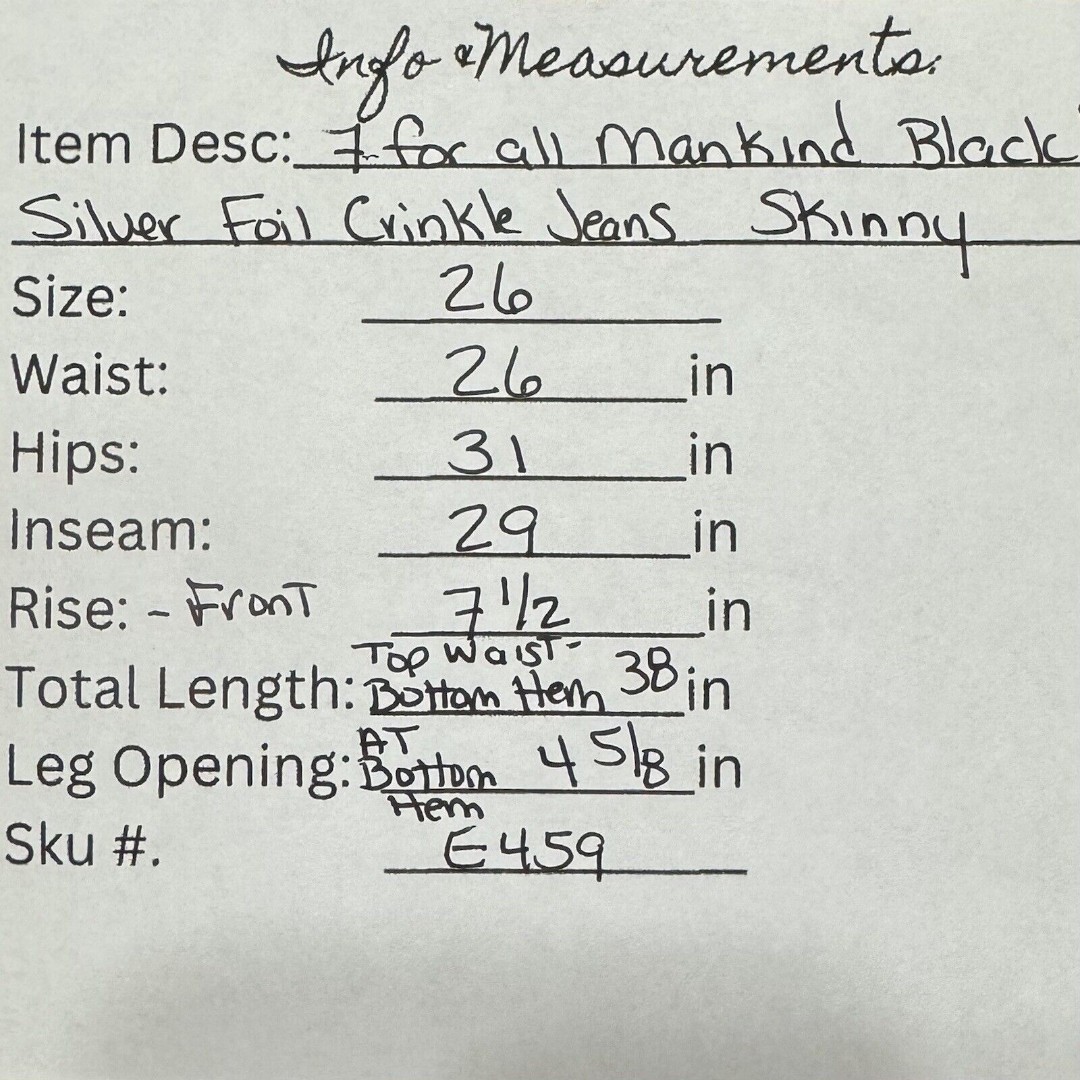 Info & Measurements:
Item Desc: 7 for all Mankind Black
Silver Foil Crinkle Jeans Skinny
Size: 26
Waist: 26 in
Hips: 31 in
Inseam: 29 in
Rise: - Front 7 1/2 in
Top Waist -
Total Length: Bottom Hem 38 in
AT
Leg Opening: Bottom 4 5/8 in
Hem
Sku #. E459